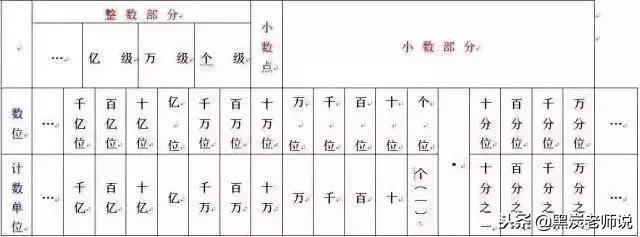 整数部分 小数点 小数部分
… 亿级 万级 个级
数位 … 千亿位 百亿位 十亿位 亿位 千万位 百万位 十万位 万位 千位 百位 十位 个位 · 十分位 百分位 千分位 万分位 …
计数单位 … 千亿 百亿 十亿 亿 千万 百万 十万 万 千 百 十 个(一) 十分之一 百分之 千分之 万分之 …
头条@黑炭老师说